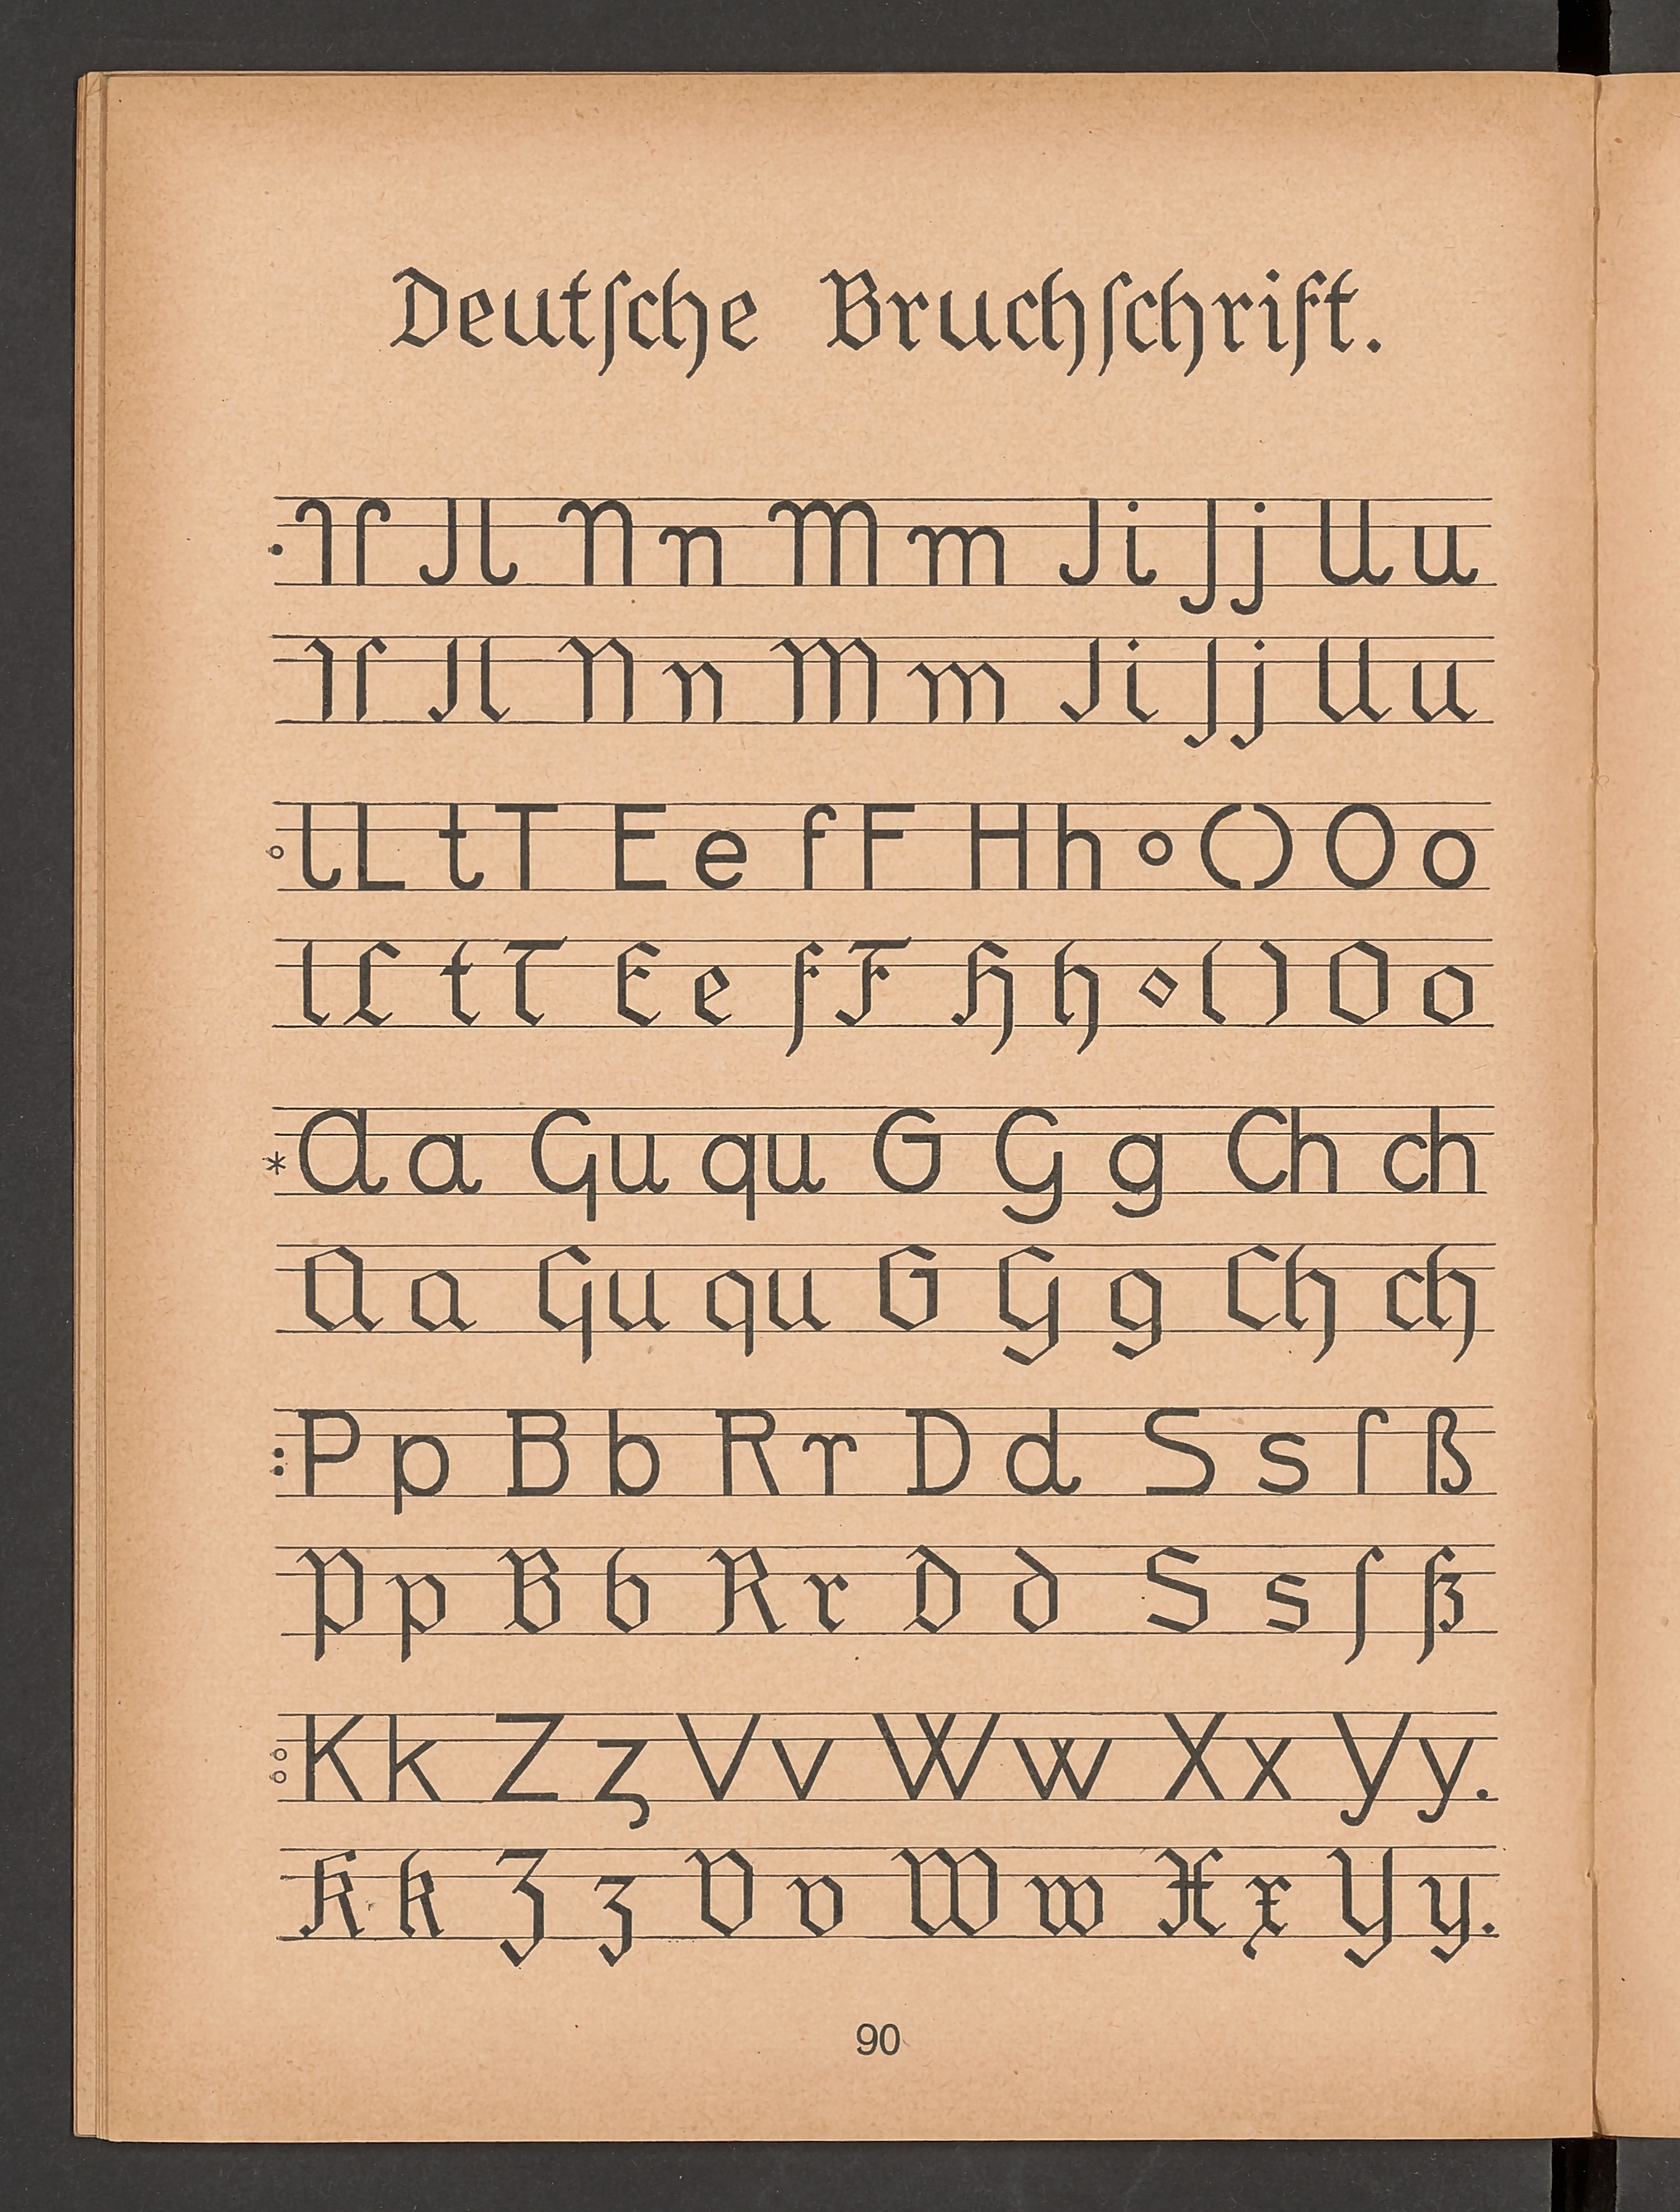 Deutſche Bruchſchrift.
N n M m J i J j U u
N n M m J i J j U u
l L t T E e f F H h O o
l L t T E e f F H h O o
A a Qu qu G G g Ch ch
A a Qu qu G G g Ch ch
P p B b R r D d S s ſ ß
P p B b R r D d S s ſ ß
K k Z z V v W w X x Y y.
K k Z z V v W w X x Y y.
90